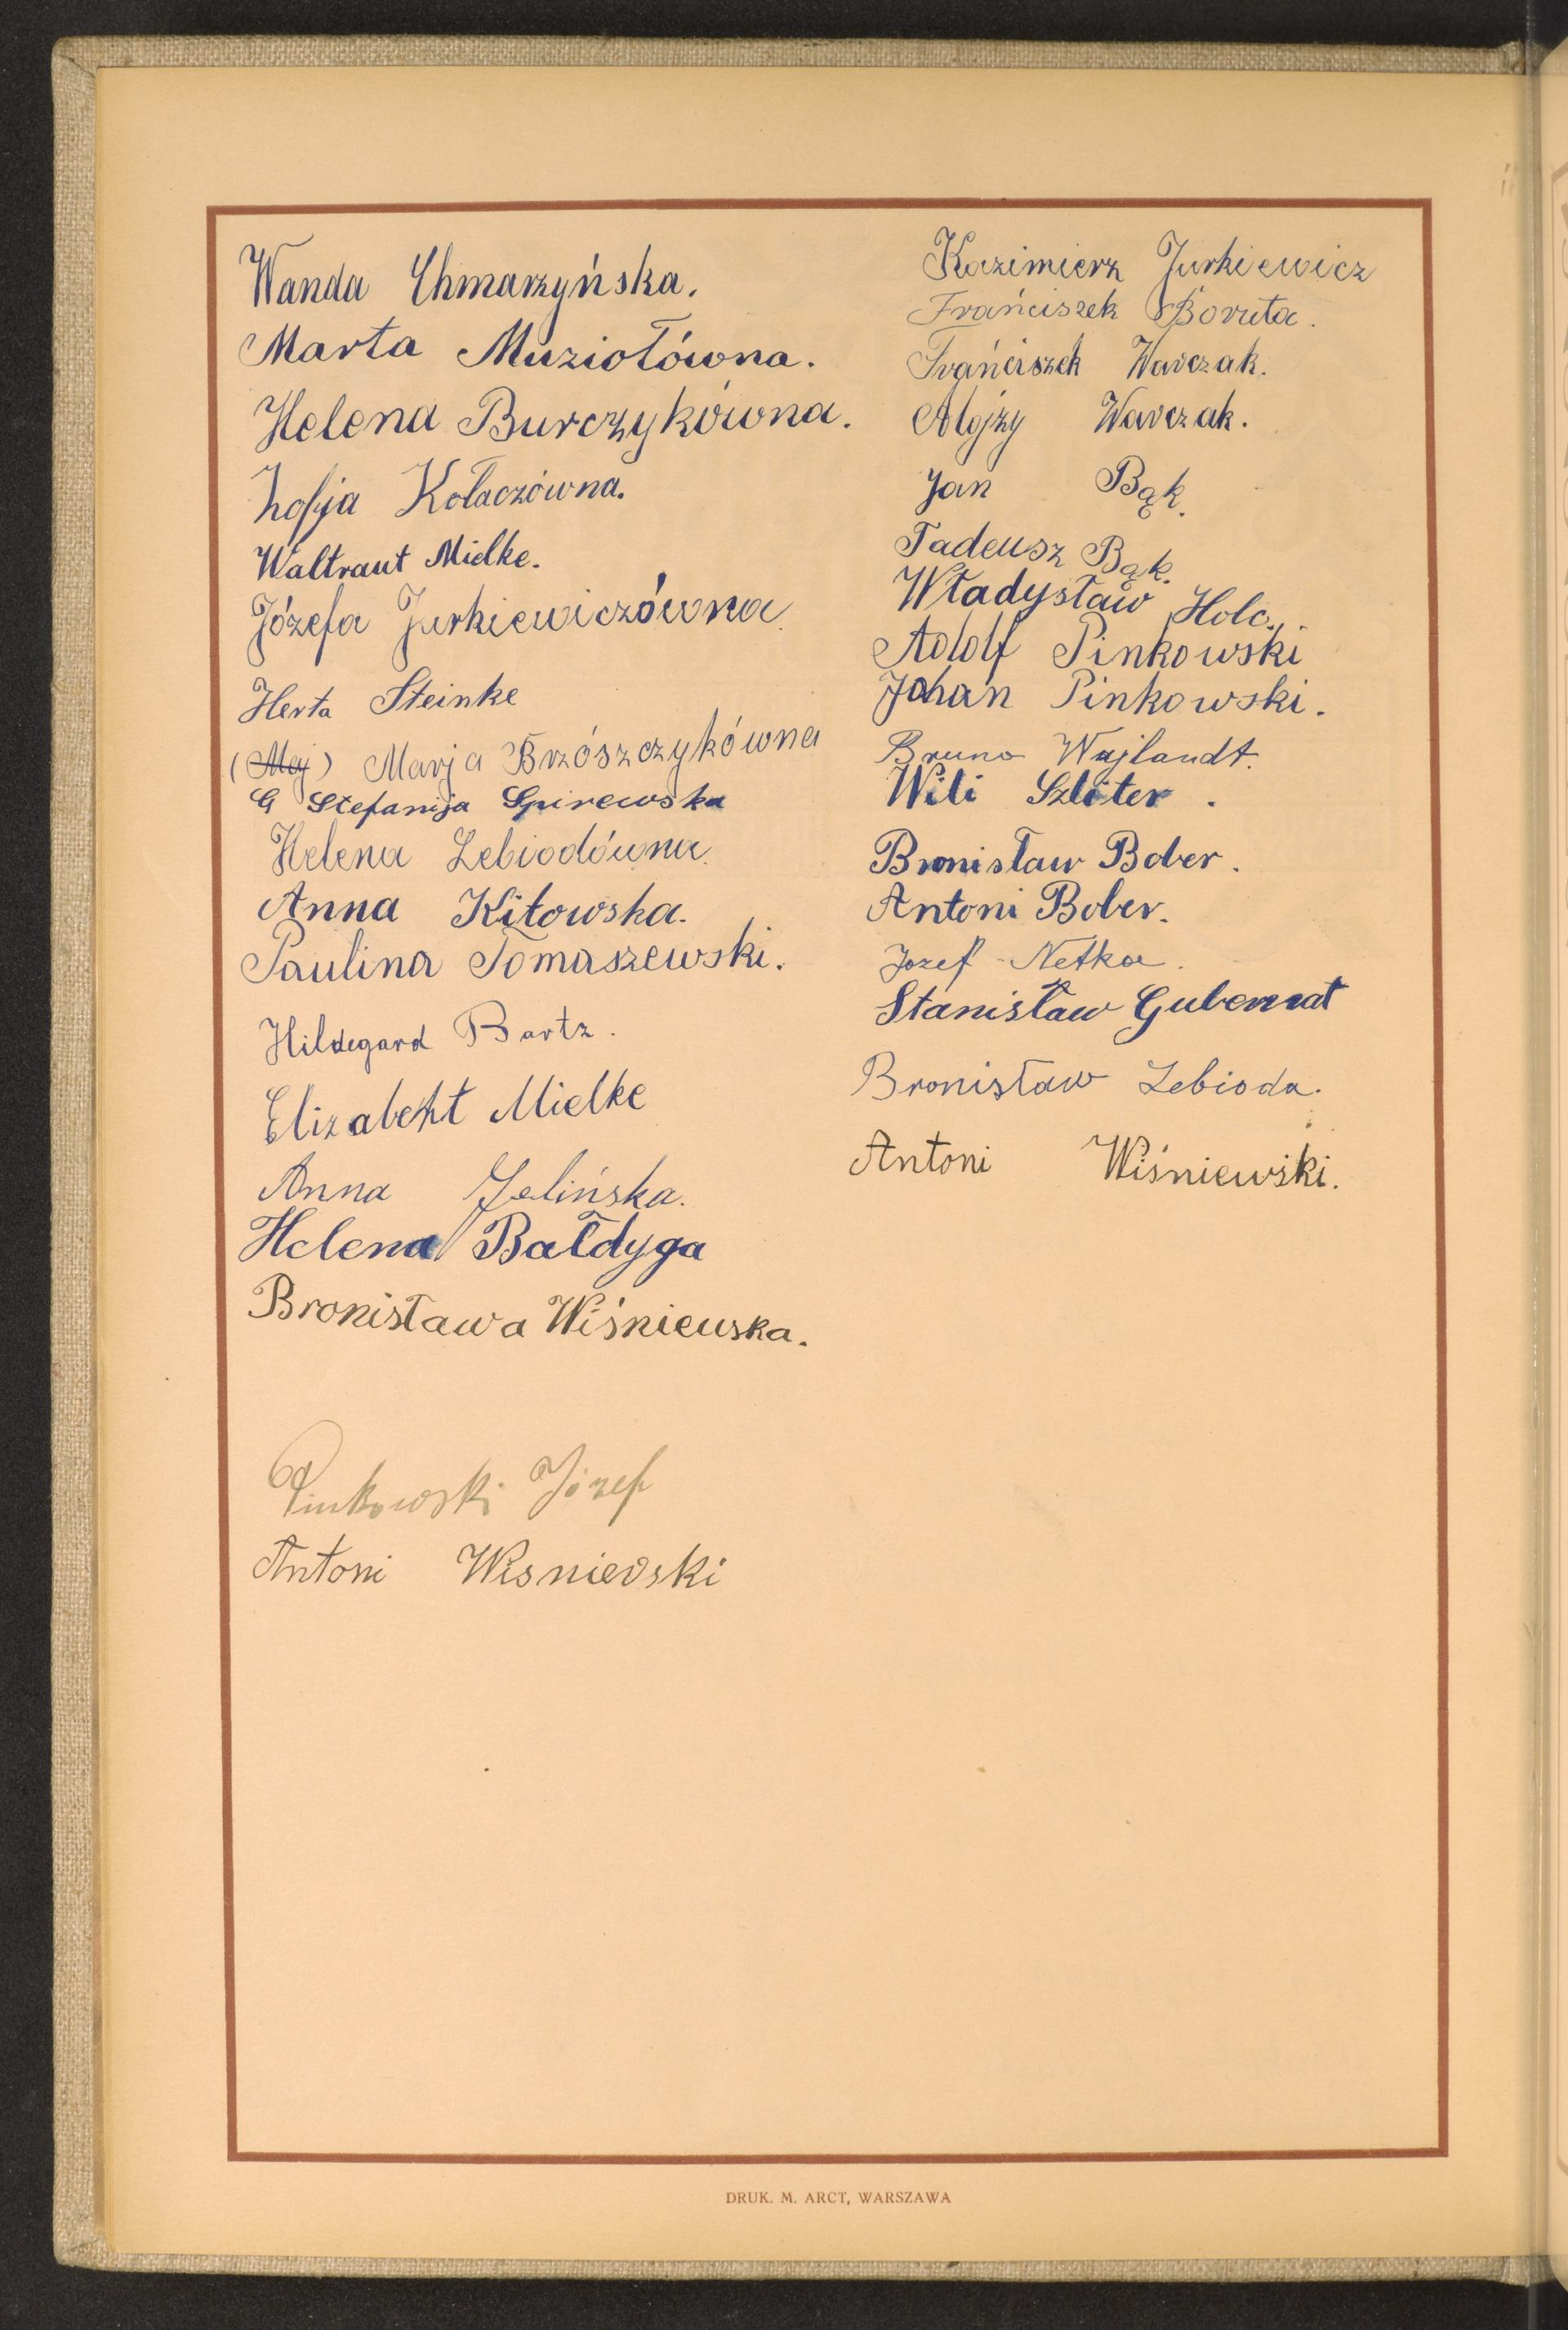 Wanda Chmarzyńska.
Marta Muziołówna.
Helena Burczykówna.
Zofja Kołaczówna.
Waltraut Mielke.
Józefa Jurkiewiczówna.
Herta Steinke
(Maj) Marja Brzószczykówna
G Stefanija Spirewska
Helena Lebiodówna.
Anna Kitowska.
Paulina Tomaszewski.
Hildegard Bartz.
Elizabeht Mielke
Anna Jelińska.
Helena Bałdyga
Bronisława Wiśniewska.
Pinkowski Józef
Antoni Wisnievski
Kazimierz Jurkiewicz
Frańciszek Boruta.
Frańciszek Warczak.
Alojzy Warczak.
Jan Bąk.
Tadeusz Bąk.
Władysław Holc.
Adolf Pinkowski
Johan Pinkowski.
Bruno Wajlandt.
Wili Szliter.
Bronisław Bober.
Antoni Bober.
Jozef Netka.
Stanisław Gubernat
Bronisław Lebioda.
Antoni Wiśniewski.
DRUK. M. ARCT, WARSZAWA